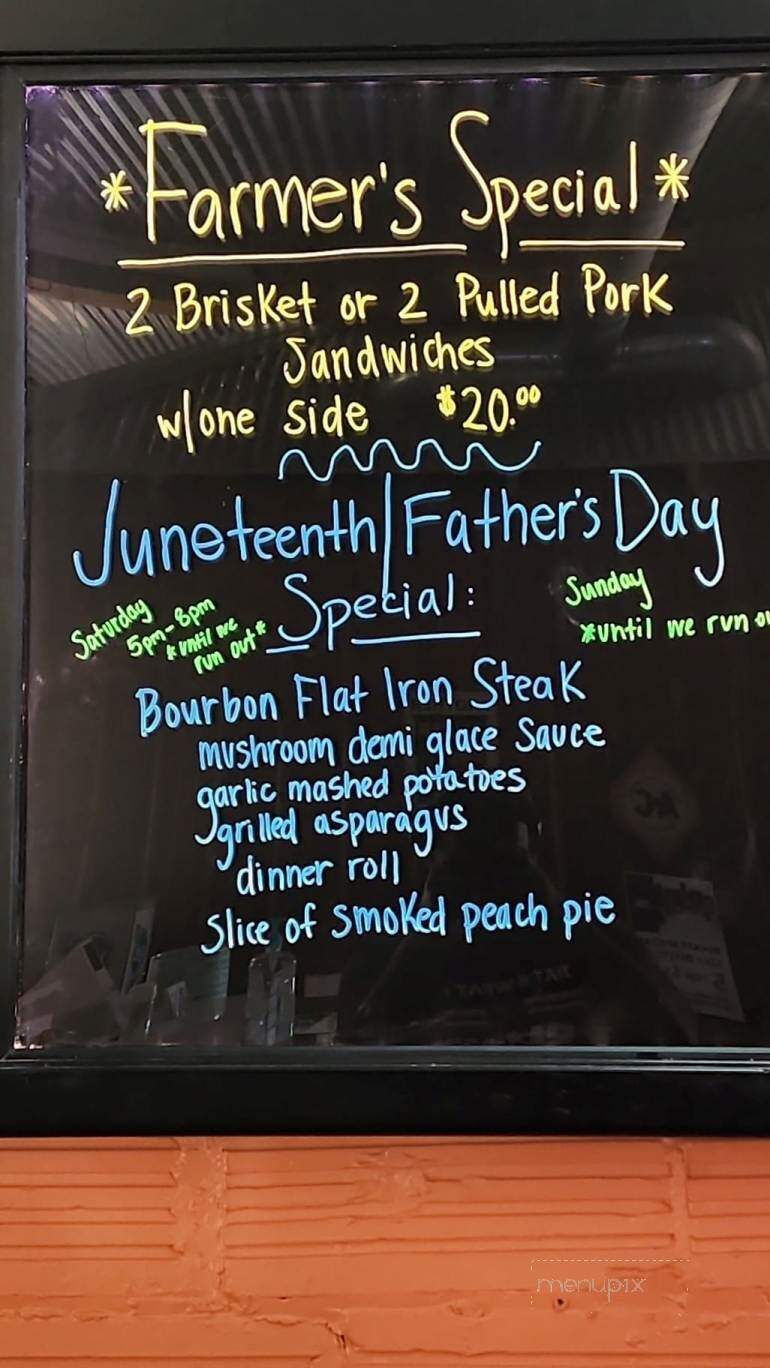 *Farmer's Special*
2 Brisket or 2 Pulled Pork
Sandwiches
w/one side $20.00
Juneteenth/Father's Day
Special:
Saturday
5pm-8pm
*until we
run out*
Sunday
*until we run
Bourbon Flat Iron Steak
mushroom demi glace Sauce
garlic mashed potatoes
grilled asparagus
dinner roll
Slice of smoked peach pie
menupix